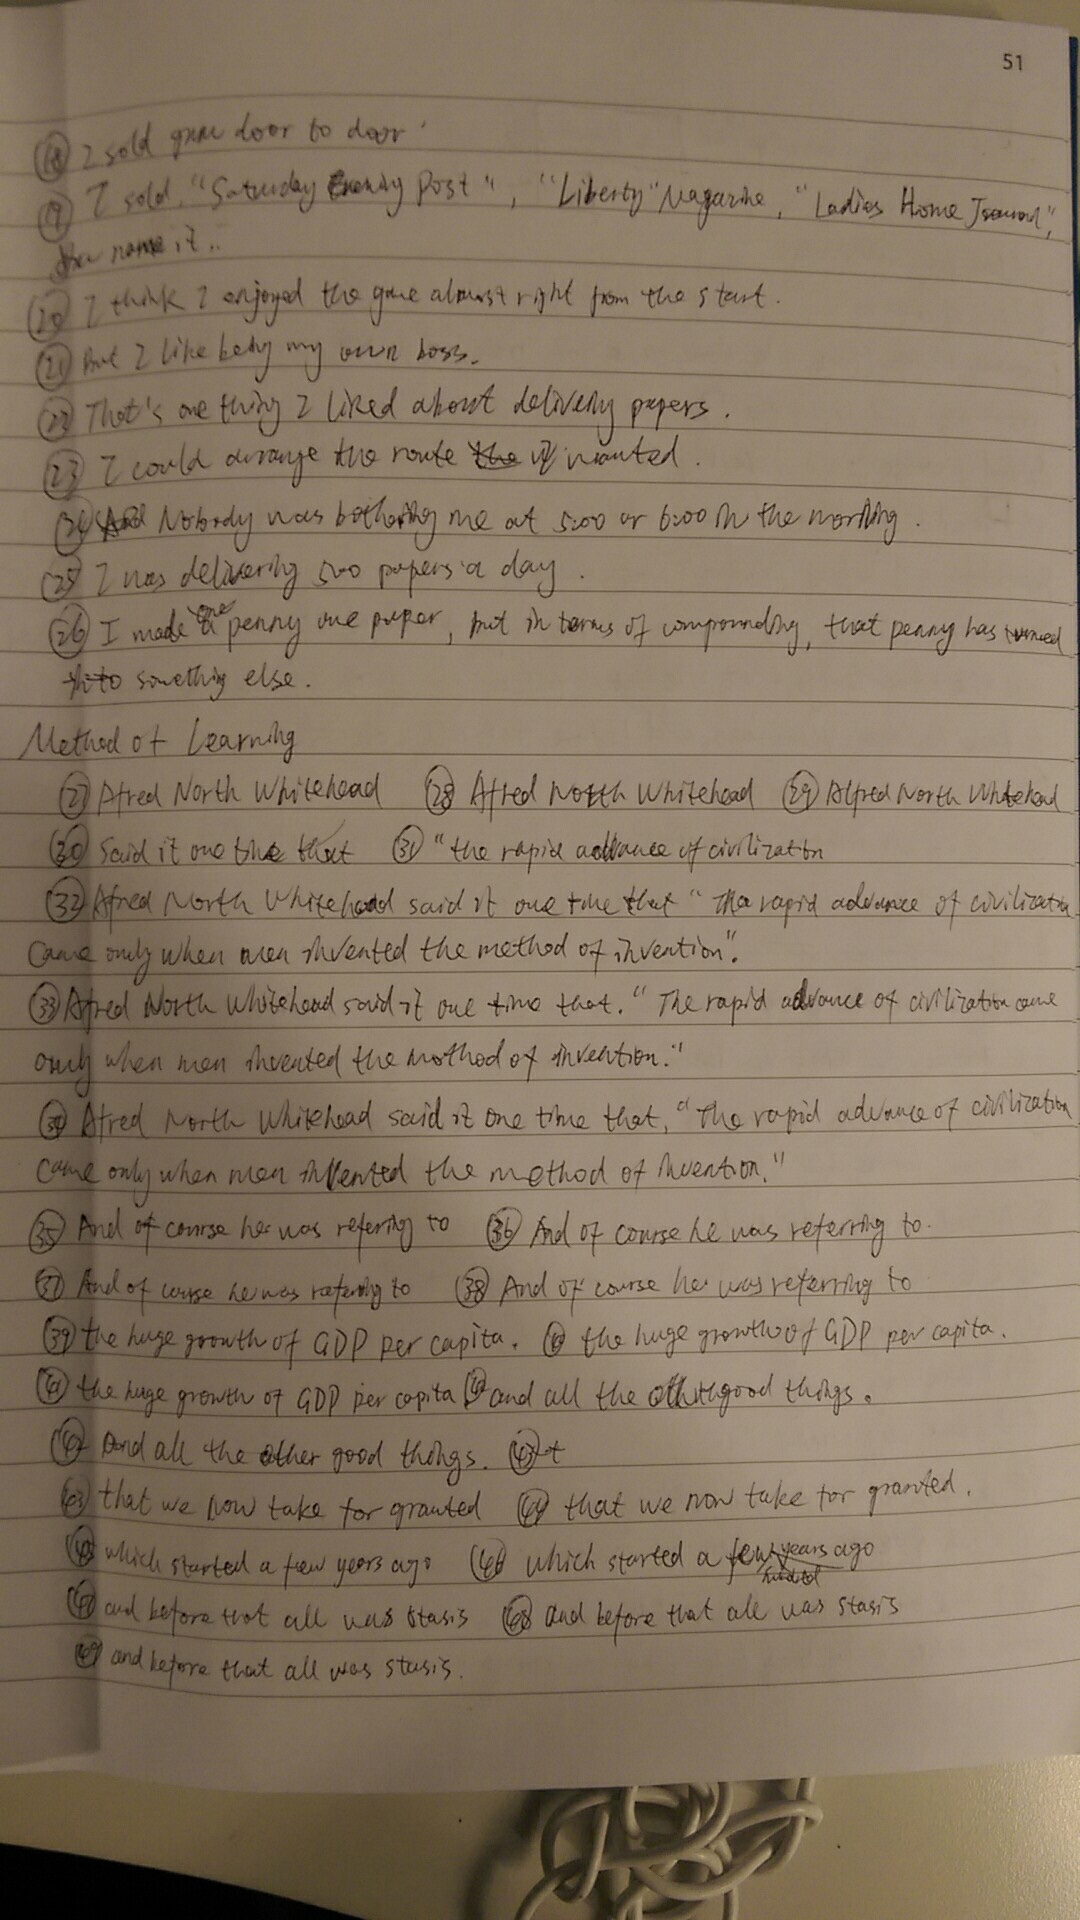 51
⑱ I sold gum door to door.
⑲ I sold "Saturday Evening Post", "Liberty" Magazine, "Ladies Home Journal",
You name it..
⑳ I think I enjoyed the game almost right from the start.
㉑ But I like being my own boss.
㉒ That's one thing I liked about delivery papers.
㉓ I could arrange the route the I wanted.
㉔ And Nobody was bothering me at 5:00 or 6:00 in the morning.
㉕ I was delivering 500 papers a day.
㉖ I made a one penny one paper, but in terms of compounding, that penny has turned
into something else.
Method of Learning
㉗ Afred North Whitehead ㉘ Afred North Whitehead ㉙ Alfred North Whitehead
㉚ Said it one time that ㉛ "the rapid advance of civilization
㉜ Afred North Whitehead said it one time that "The rapid advance of civilization
came only when men invented the method of invention".
㉝ Afred North Whitehead said it one time that. "The rapid advance of civilization came
only when men invented the method of invention."
㉞ Afred North Whitehead said it one time that, "The rapid advance of civilization
came only when men invented the method of invention."
㉟ And of course he was refering to ㊱ And of course he was referring to.
㊲ And of course he was refering to ㊳ And of course he was referring to
㊴ the huge growth of GDP per capita. ㊵ the huge growth of GDP per capita.
㊶ the huge growth of GDP per capita and all the good things.
㊷ And all the other good things. t
㊸ that we now take for granted ㊹ that we now take for granted.
㊺ which started a few years ago ㊻ which started a few years ago
㊼ and before that all was stasis ㊽ and before that all was stasis
㊾ and before that all was stasis.